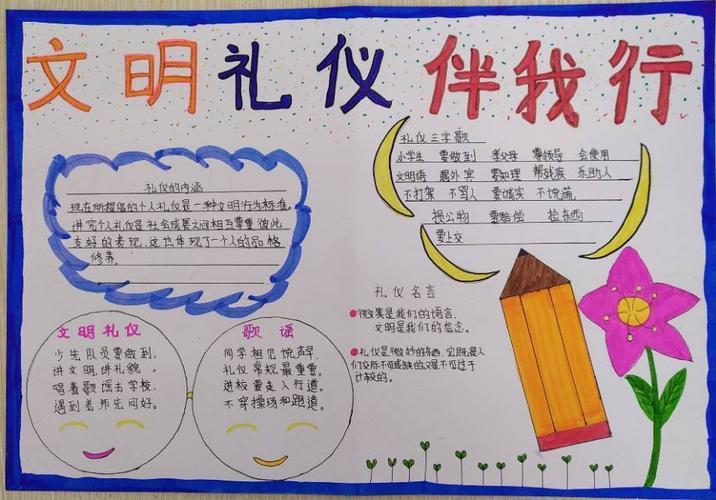 文明礼仪伴我行
礼仪的内涵
现在所提倡的个人礼仪是一种文明行为标准。
讲究个人礼仪是社会成展之间相互尊重彼此
友好的表现,这也体现了一个人的品格
修养。
礼仪三字歌
小学生 要做到 孝父母 尊领导 会使用
文明语 遇外宾 要知理 帮残疾 乐助人
不打架 不骂人 要诚实 不说谎
损公物 要赔偿 拾东西
要上交
礼仪名言
微笑是我们的语言,
文明是我们的信念。
礼仪是微妙的东西,它既是人
们交际不可或缺的又是不可过于
计较的。
文明礼仪
少生队员要做到,
讲文明,讲礼貌。
唱着歌儒去学校,
遇到老师先问好。
歌谣
同学相见说声早,
礼仪常规最重要。
进校要走人行道。
不穿操场和跑道。